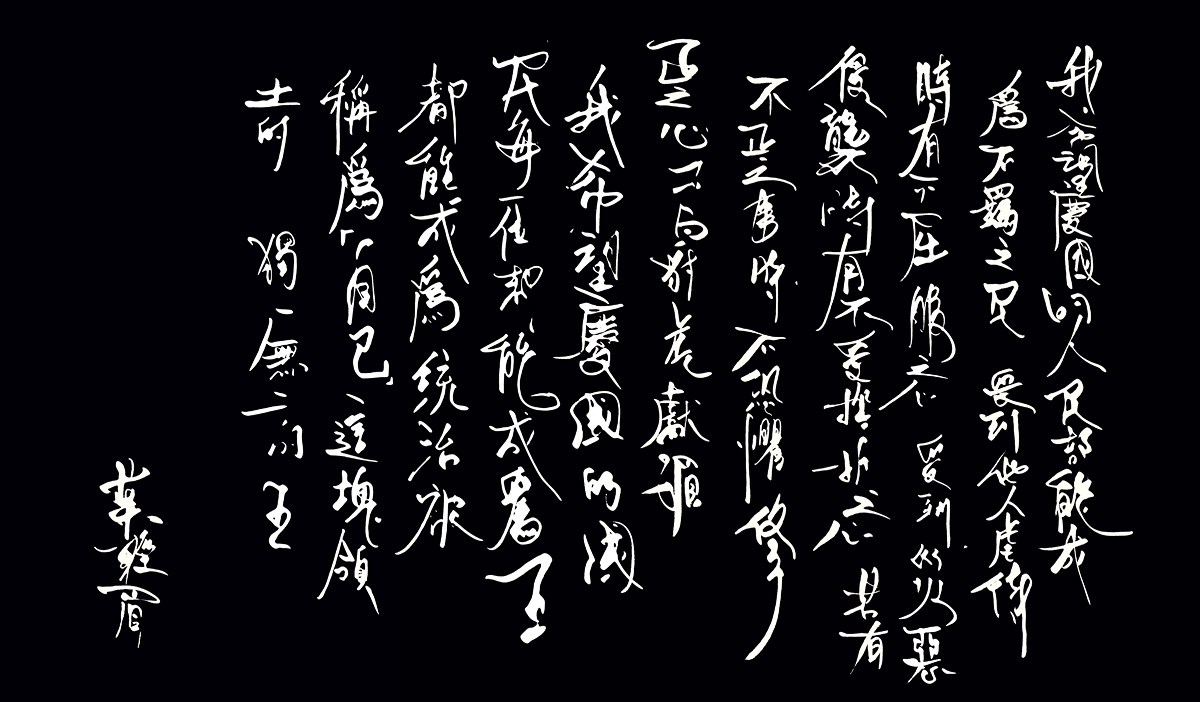 我希望慶國的人民都能成
為不羈之民 受到他人虐待
時有不屈服之心 受到災惡
侵襲時有不受挫折之心 若有
不正之事時 不恐懼修
正之心 不向豺虎獻
我希望慶國的國
民每一位都能成為王
都能成為統治被
稱為「自己」這塊領
土的 獨一無二的王